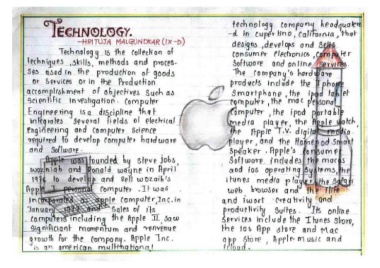 TECHNOLOGY.
-HRITUJA MALGUNDKAR (IX-D)
Technology is the collection of
techniques, skills, methods and proces-
ses used in the production of goods
or services or in the production
accomplishment of objectives such as
scientific investigation. computer
Engineering is a discipline that
integrates several fields of electrical
engineering and computer science
required to develop computer hardware
and software.
Apple was founded by Steve Jobs,
wozniak and Ronald wayne in April
1976 to develop and sell wozniak's
Apple personal computer. It was
incorporated as apple computer, Inc. in
January and Sales of its
computers including the Apple II, saw
significant momentum and revenue
growth for the company. Apple Inc.
is an american multinational
technology company headquarte-
-d in cupertino, california, that
designs, develops and sells
consumer electronics, computer
software and online services.
The company's hardware
products include the iphone
smartphone, the ipad tablet
computer, the mac personal
computer, the ipod portable
media player, the Apple watch,
the Apple T.V. digital media
player, and the Homepod smart
speaker. Apple's consumer
software includes the macos
and ios operating systems, the
itunes media player, the safari
web browser and the ilife
and iwork creativity and
productivity suites. Its online
services include the Itunes store,
the ios App store and mac
app store, Apple music and
icloud.